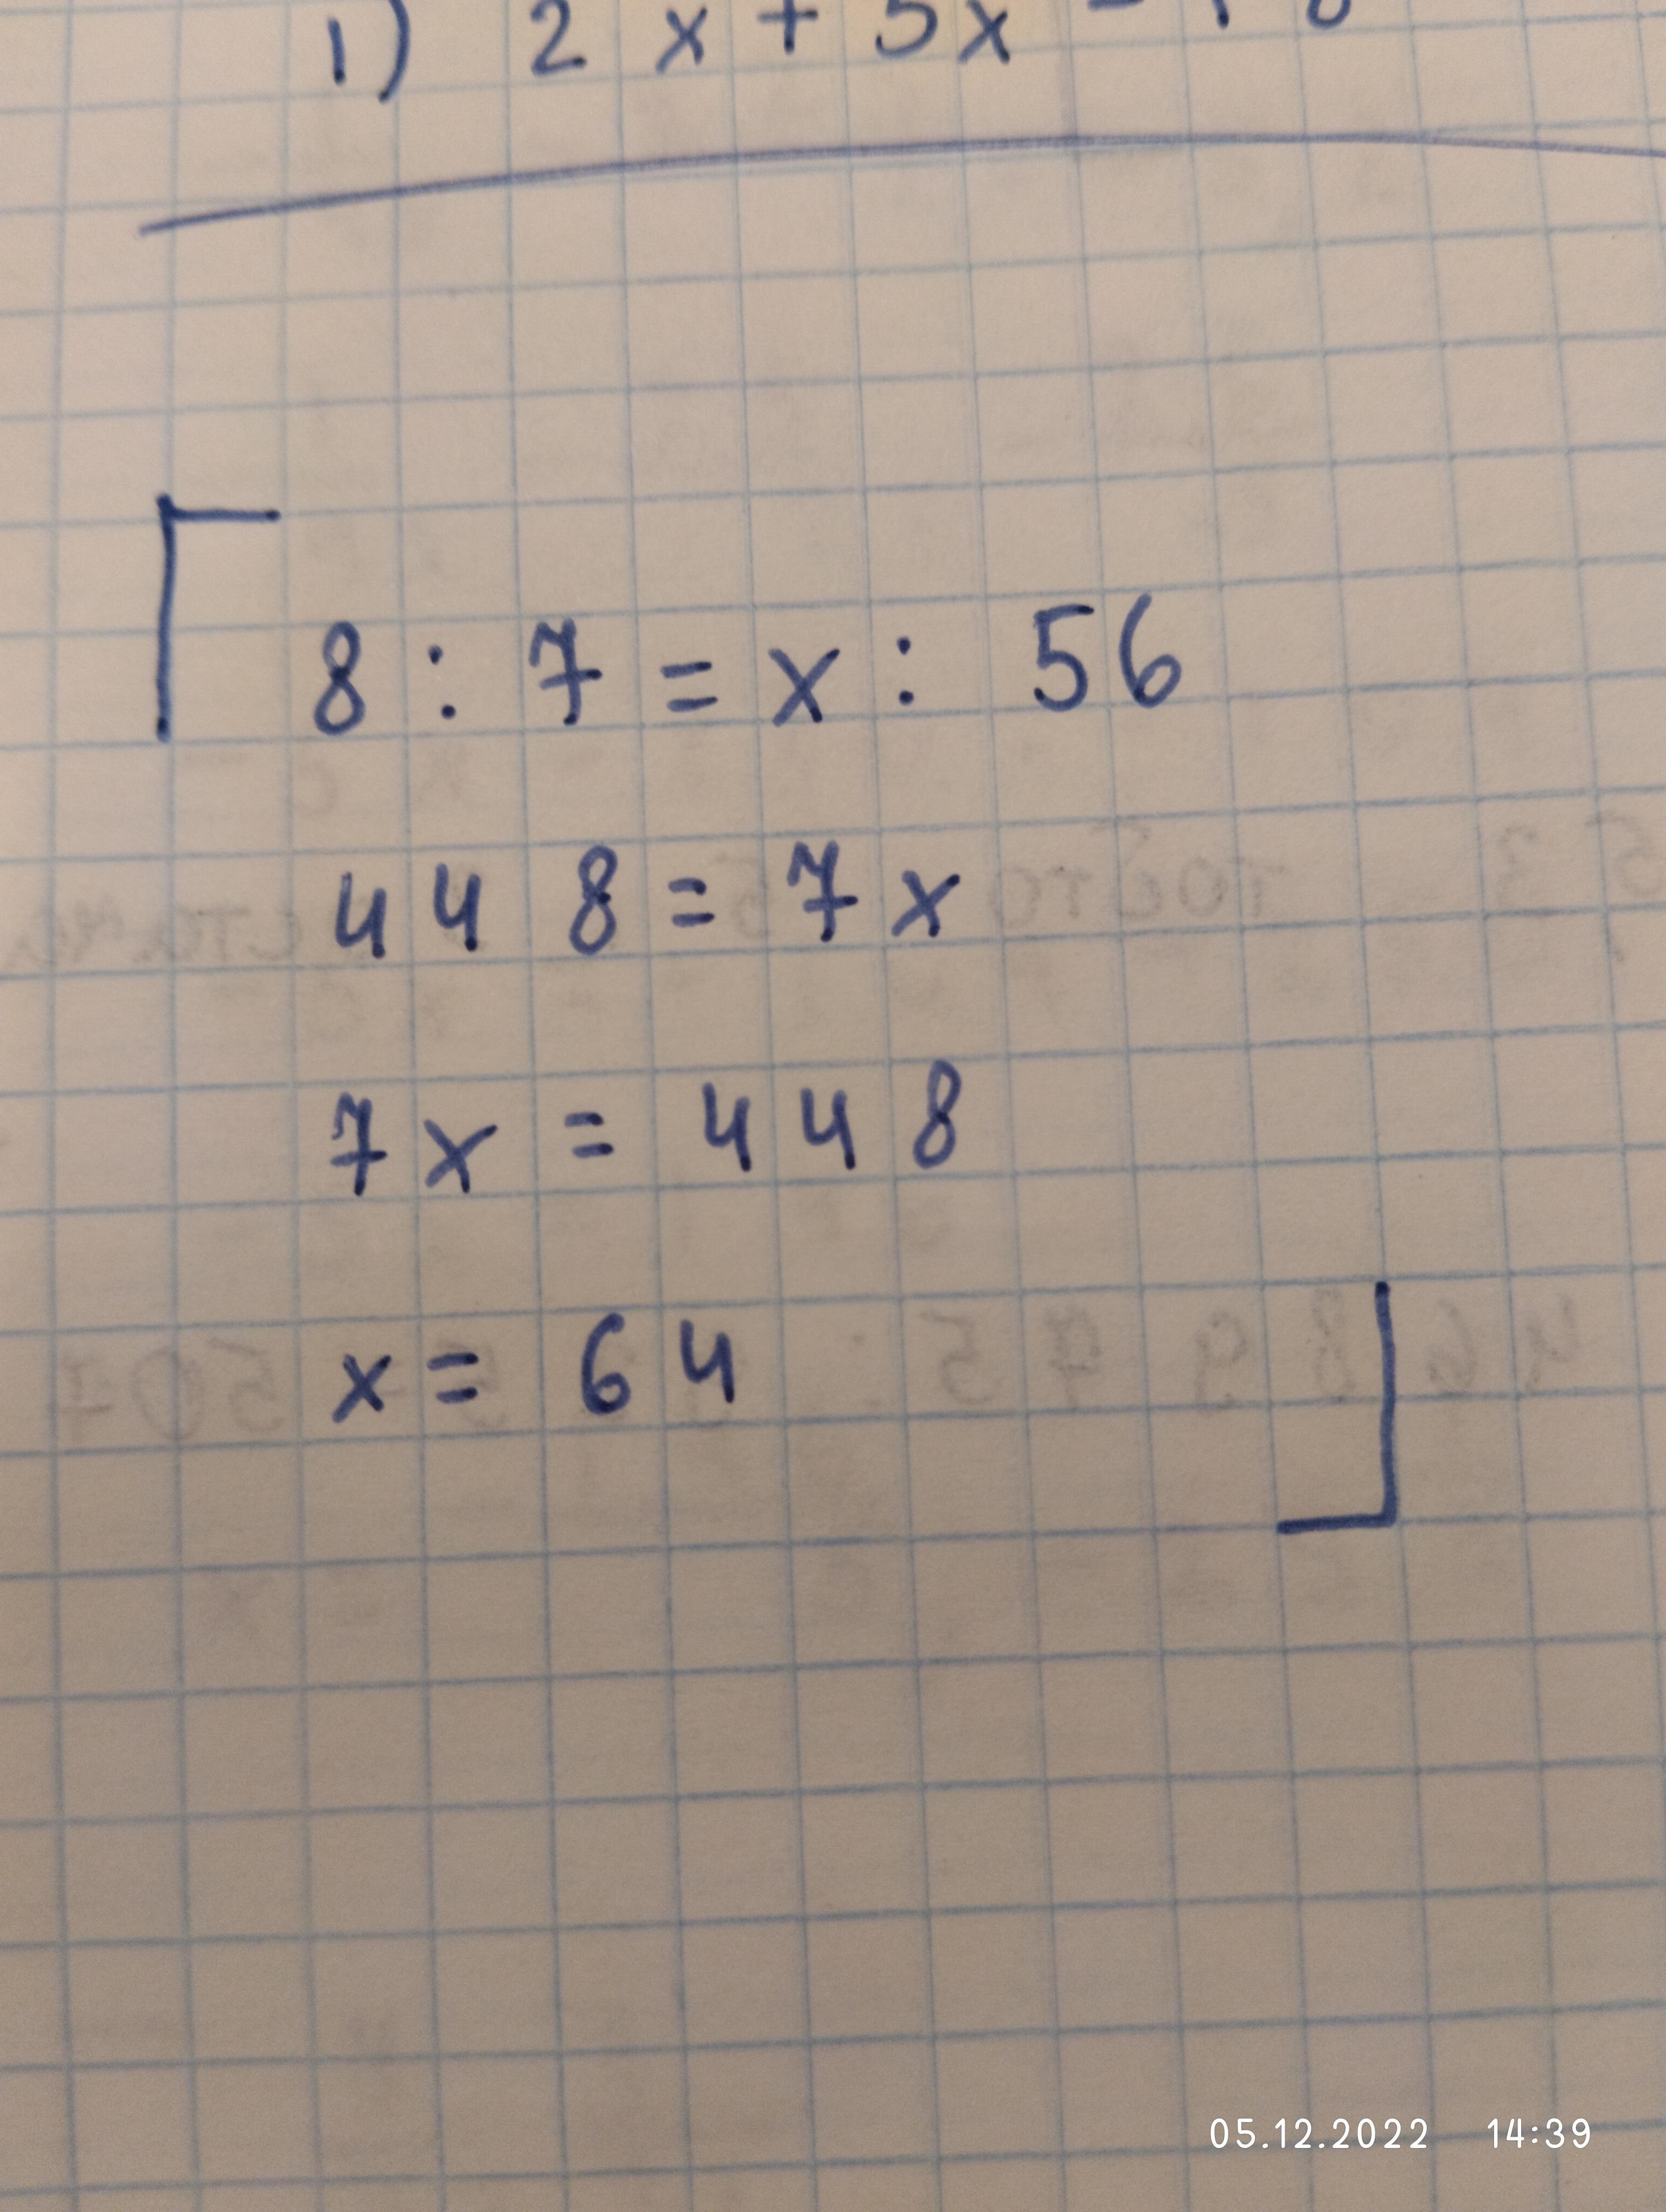 1) 2x + 5x
8 : 7 = x : 56
448 = 7x
7x = 448
x = 64
05.12.2022 14:39